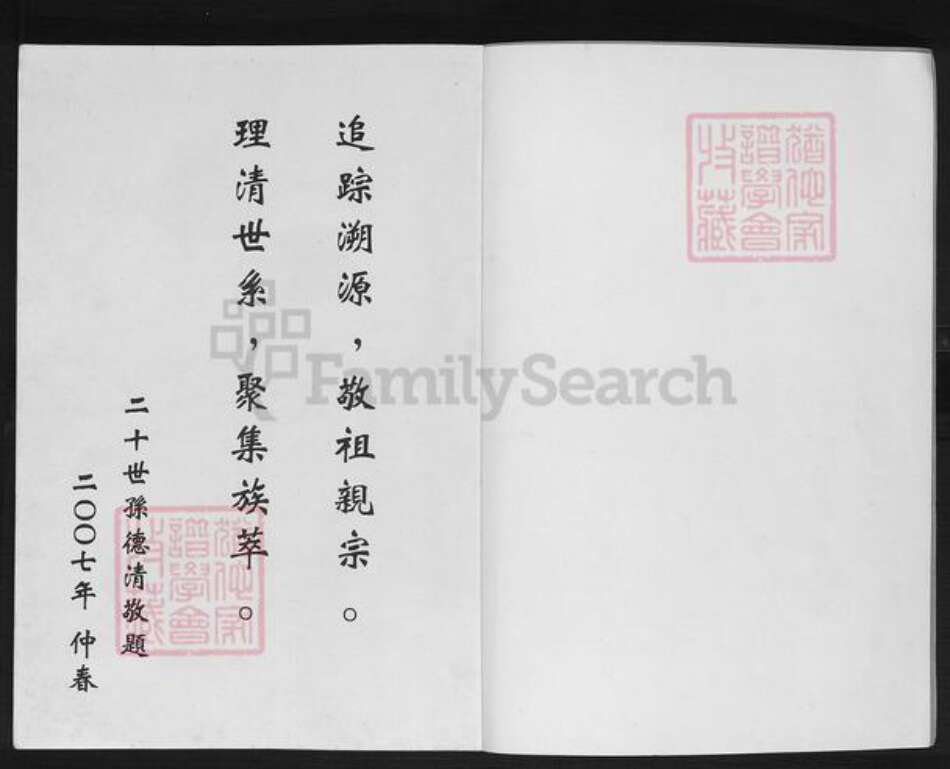 追踪溯源，敬祖親宗。
理清世系，聚集族萃。
二十世孫德清敬題
二〇〇七年 仲春
FamilySearch
猶他家
譜學會
收藏
猶他家
譜學會
收藏